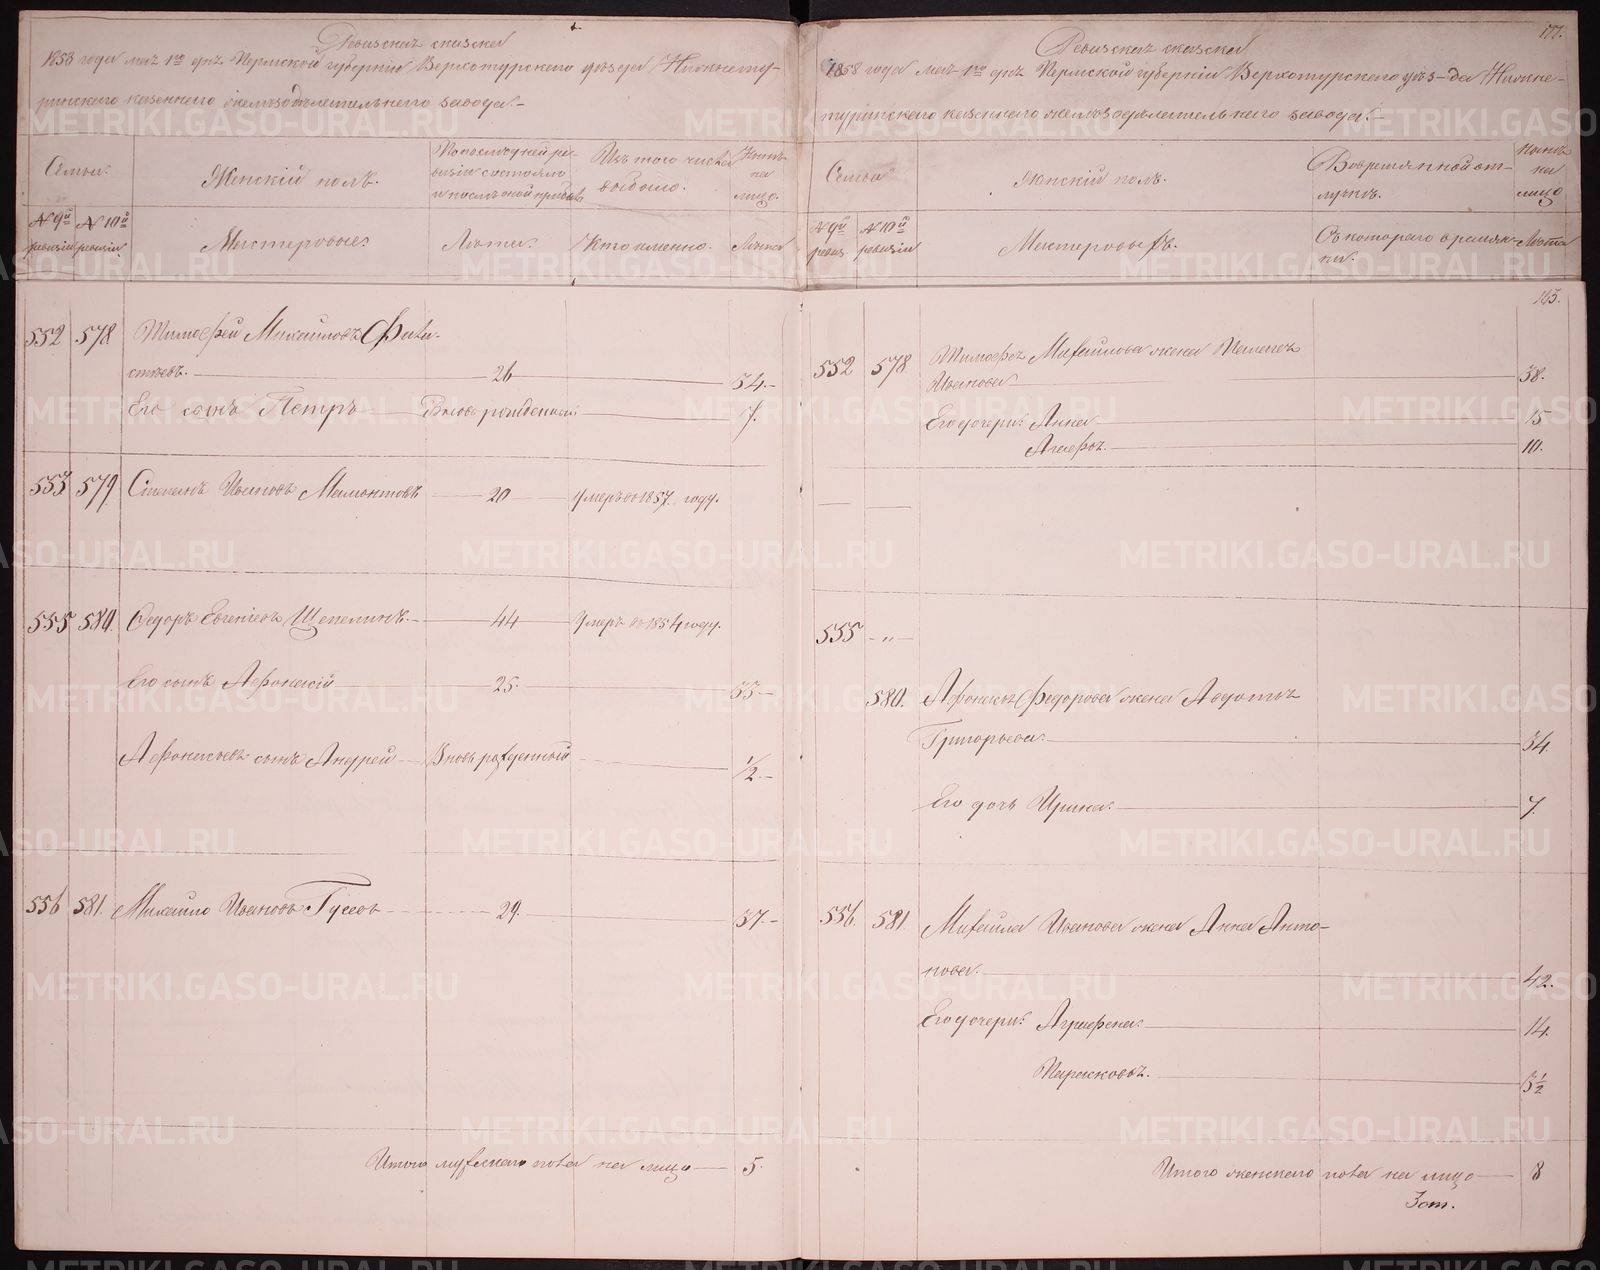 Ревизская сказка
1858 года мая 1го дня Пермской губерніи Верхотурскаго уѣзда Нижнету-
ринскаго казеннаго желѣзодѣлательнаго завода.-
Семьи. Женскій полъ. По послѣдней ре-
визіи состояло
и послѣ оной прибыло Изъ того числа
выбыло. Нынѣ
на
лицо.
№ 9й
ревизіи № 10й
ревизіи. Мастеровые: Лѣта. Кто именно. Лѣта
552 578 Тимофей Михайловъ Фила-
26 54.-
Его сынъ Петръ Вновь рожденный 7.
553 579 Степанъ Ивановъ Мамонтовъ 20 умеръ въ 1857 году.
555 580 Федоръ Евгеніевъ Щепелинъ.- 44 Умеръ въ 1854 году.
Его сынъ Афонасій 25. 33-
Афонасьевъ сынъ Андрей Вновь рожденный 1/2.-
556 581. Михайло Ивановъ Гусевъ 29. 37.-
Итого мужскаго пола на лицо 5.
177.
Ревизская сказка
1858 года мая 1го дня Пермской губерніи Верхотурскаго уѣз-да Нижне-
туринскаго казеннаго желѣзодѣлательнаго завода.-
Семьи Женскій полъ. Во временной от-
лучкѣ. Нынѣ
на
лицо
№ 9й
ревиз № 10й
ревизіи Мастеровыхъ. Съ котораго време-
ни. Лѣта
163.
552 578 Тимофея Михайлова жена Пелагея
Иванова 38.
Его дочери: Анна 15
Агафья. 10.
555 - „ -
580. Афонасья Федорова жена Авдотья
Григорьева. 34.
Его дочь Ирина. 7.
556. 581. Михайла Ивановa жена Анна Анто-
нова. 42.
Его дочери: Аграфена. 14.
Парасковья. 3 1/2
Итого женскаго пола на лицо 8
Зот.
METRIKI.GASO-URAL.RU